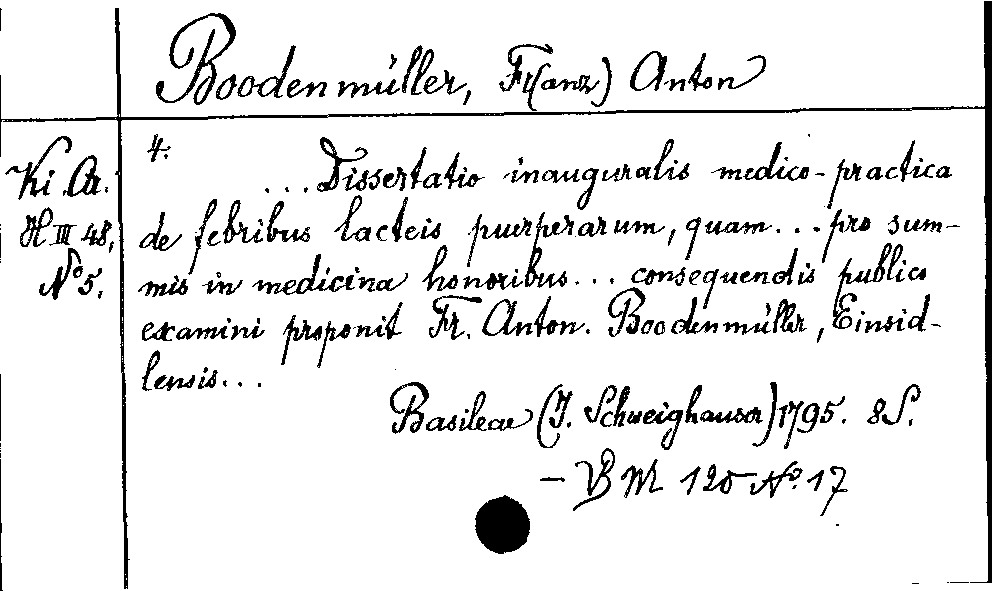 Boodenmüller, Fr(anz) Anton
Ki. Ar.
H III 48,
No 5.
4:
...Dissertatio inauguralis medico-practica
de febribus lacteis puerperarum, quam... pro sum-
mis in medicina honoribus... consequendis publico
examini proponit Fr. Anton. Boodenmüller, Einsid-
lensis...
Basileae (J. Schweighauser) 1795. 8S.
- VB M 120 No. 17